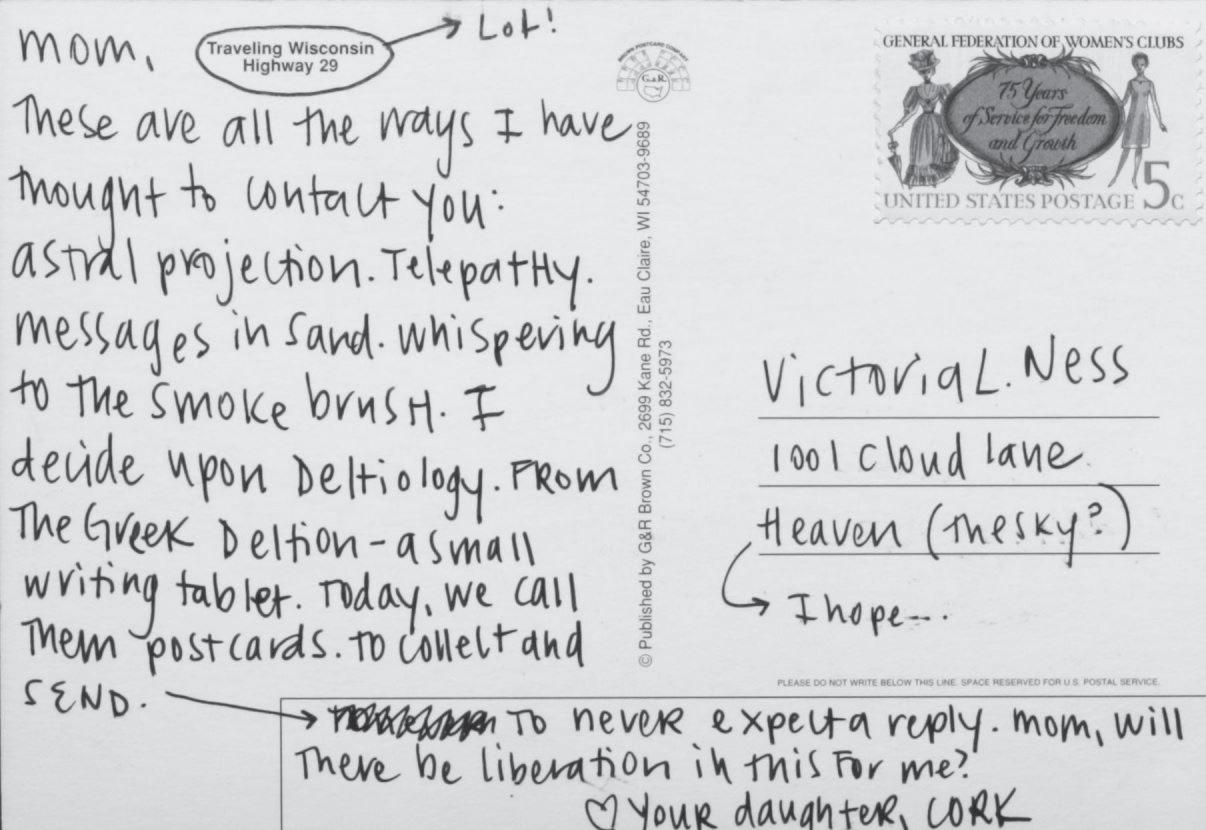 Lot!
mom,
Traveling Wisconsin
Highway 29
These are all the ways I have
thought to contact you:
astral projection. Telepathy.
messages in sand. whispering
to the smoke brush. I
decide upon Deltiology. From
The Greek Deltion - a small
writing tablet. Today, we call
Them postcards. To collect and
SEND.
To never expect a reply. mom, will
There be liberation in this for me?
♡ Your daughter, CORK
BROWN POSTCARD COMPANY
G & R
© Published by G&R Brown Co., 2699 Kane Rd., Eau Claire, WI 54703-9689
(715) 832-5973
GENERAL FEDERATION OF WOMEN'S CLUBS
75 Years
of Service for Freedom
and Growth
UNITED STATES POSTAGE 5c
Victoria L. Ness
1001 Cloud Lane
Heaven (The sky?)
I hope--.
PLEASE DO NOT WRITE BELOW THIS LINE. SPACE RESERVED FOR U.S. POSTAL SERVICE.